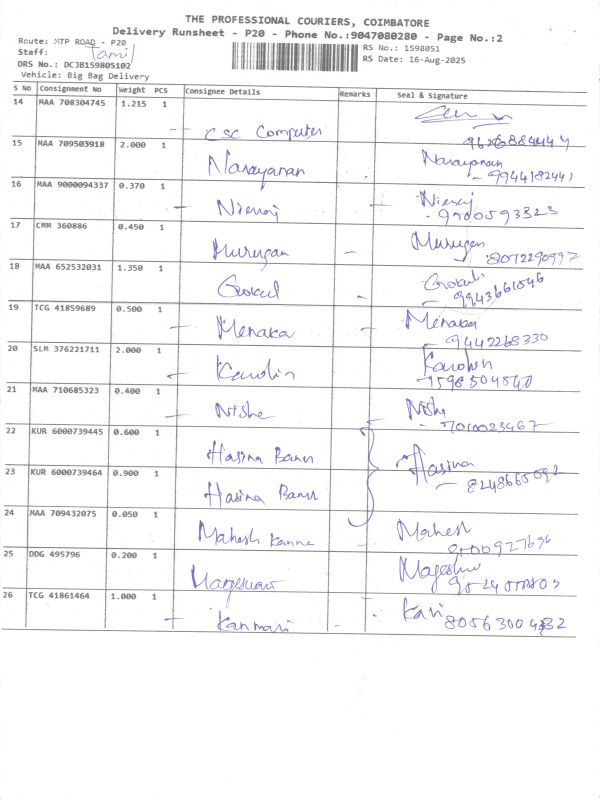 THE PROFESSIONAL COURIERS, COIMBATORE
Delivery Runsheet - P20 - Phone No.:9047080280 - Page No.:2
Route: MTP ROAD - P20
RS No: 1598051
Staff: Tamil
RS Date: 16-Aug-2025
DRS No.: DCJB159805102
Vehicle: Big Bag Delivery
S No Consignment No Weight PCS Consignee Details Remarks Seal & Signature
14 MAA 708304745 1.215 1
CSC Computer
15 MAA 709503918 2.000 1
Narayanan Narayanan
16 MAA 9000094337 0.370 1
17 CMM 360886 0.450 1
Murugan - Murugan
8072290997
18 MAA 652532031 1.350 1
Gokul - Gokul
9943661846
19 TCG 41859689 0.500 1
Menaka Menaka
9442268330
20 SLM 376221711 2.000 1
21 MAA 710685323 0.400 1
Nisha Nisha
7010023467
22 KUR 6000739445 0.600 1
Hasina Banu
Hasina
23 KUR 6000739464 0.900 1
8248665092
Hasina Banu
24 MAA 709432075 0.050 1
Mahesh Mahesh
25 DDG 495796 0.200 1
26 TCG 41861464 1.000 1
Kanmani - Kani